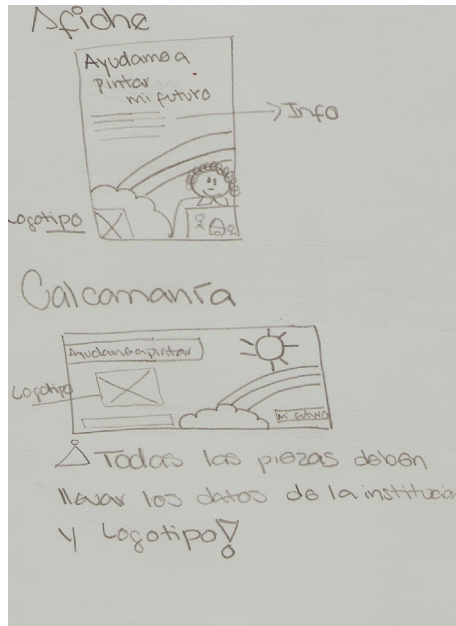 Afiche
Ayudame a
pintar
mi futuro
Info
Logotipo
Calcomanía
Ayudame a pintar
Logotipo
mi futuro
¡Todas las piezas deben
llevar los datos de la institucio
y Logotipo!